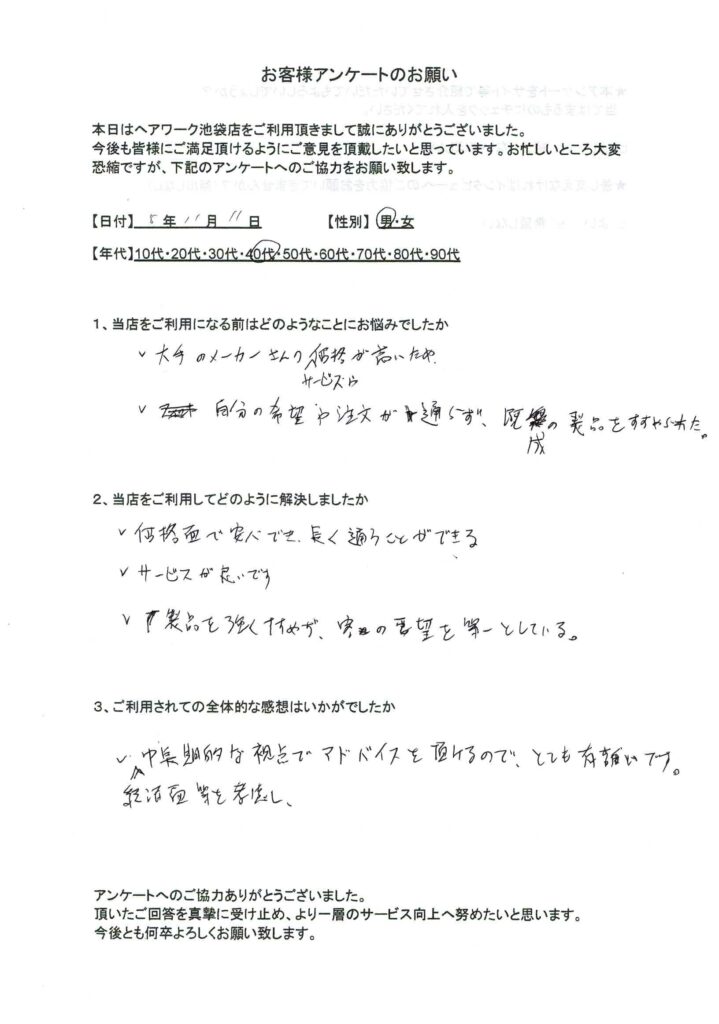 お客様アンケートのお願い
本日はヘアワーク池袋店をご利用頂きまして誠にありがとうございました。
今後も皆様にご満足頂けるようにご意見を頂戴したいと思っています。お忙しいところ大変
恐縮ですが、下記のアンケートへのご協力をお願い致します。
【日付】 5 年 11 月 11 日 【性別】 男・女
【年代】10代・20代・30代・40代・50代・60代・70代・80代・90代
1、当店をご利用になる前はどのようなことにお悩みでしたか
✓ 大手のメーカーさんの価格が高いたや
サービスら
✓ 自分の希望や注文が通らず、既の製品をすすめられた。
成
2、当店をご利用してどのように解決しましたか
✓ 価格面で安心でき、長く通うことができる
✓ サービスが良いです
✓ 製品を強くすすめず、の要望を第一としている。
3、ご利用されての全体的な感想はいかがでしたか
✓ 中長期的な視点でアドバイスを頂けるので、とても有難いです。
経済面等を考慮し、
アンケートへのご協力ありがとうございました。
頂いたご回答を真摯に受け止め、より一層のサービス向上へ努めたいと思います。
今後とも何卒よろしくお願い致します。